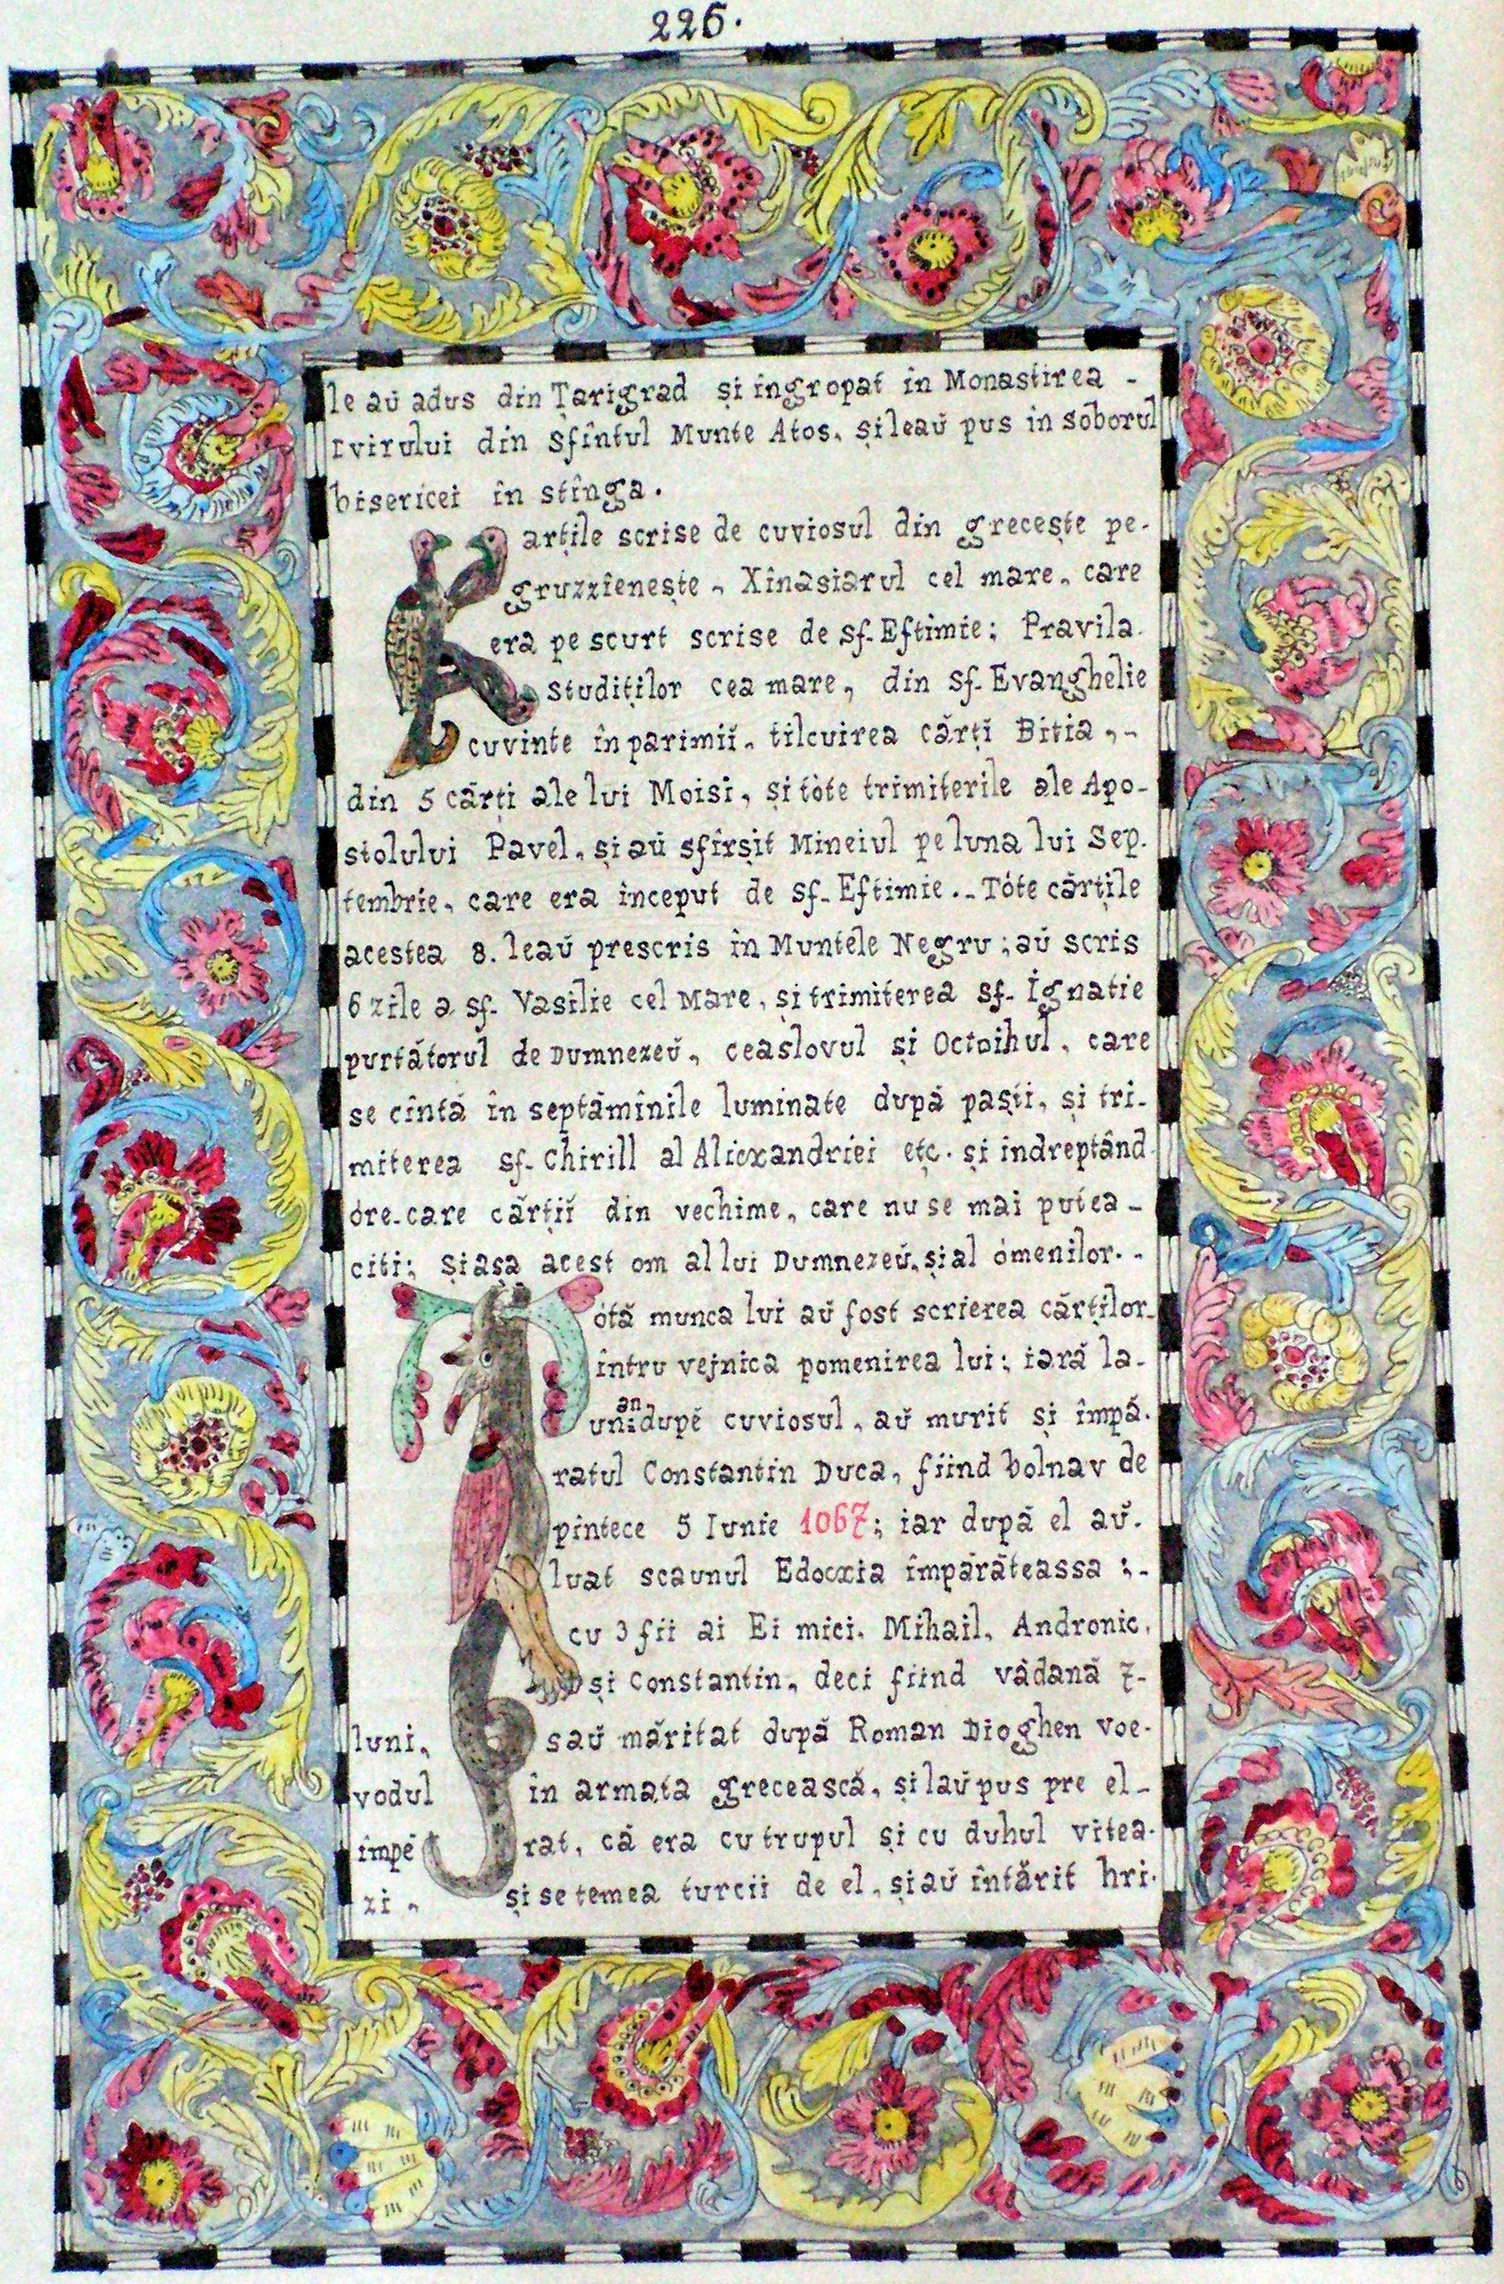 226.
le aŭ adus din Țarigrad și îngropat în Monastirea -
Ivirului din Sfîntul Munte Atos, și leaŭ pus in soborul
bisericei în stînga.
Karțile scrise de cuviosul din grecește pe-
gruzzîenește, Xînasiarul cel mare, care
era pe scurt scrise de sf. Eftimie; Pravila
studiților cea mare, din sf. Evanghelie
cuvinte în parimiĭ, tilcuirea cărți Bitia,-
din 5 cărți ale lui Moisi, și tóte trimiterile ale Apo-
stolului Pavel, și aŭ sfîrșit Mineiul pe luna lui Sep-
tembrie, care era început de sf. Eftimie.. Tóte cărțile
acestea 8. leaŭ prescris în Muntele Negru; aŭ scris
6 zile a sf. Vasilie cel Mare, și trimiterea sf. Ignatie
purtătorul de Dumnezeŭ, ceaslovul și Octoihul, care
se cîntă în septămînile luminate după paștĭ, și tri-
miterea sf. Chirill al Alicxandriei etc. și indreptând
óre-care cărțiĭ din vechime, care nu se mai putea -
citi; și așa acest om al lui Dumnezeŭ, și al ómenilor. -
Tótă munca lui aŭ fost scrierea cărților-
întru vejnica pomenirea lui; iară la-
un an după cuviosul, aŭ murit și împă-
ratul Constantin Duca, fiind bolnav de
pintece 5 Iunie 1067; iar după el aŭ-
luat scaunul Edocxia împărăteassa ;-
cu 3 fii ai Ei mici, Mihail, Andronic,
și Constantin, deci fiind vădană 7-
luni, saŭ măritat după Roman Dioghen voe-
vodul în armata grecească, și laŭ pus pre el-
împĕrat, că era cu trupul și cu duhul vitea-
zi, și se temea turcii de el, și aŭ întărit hri-